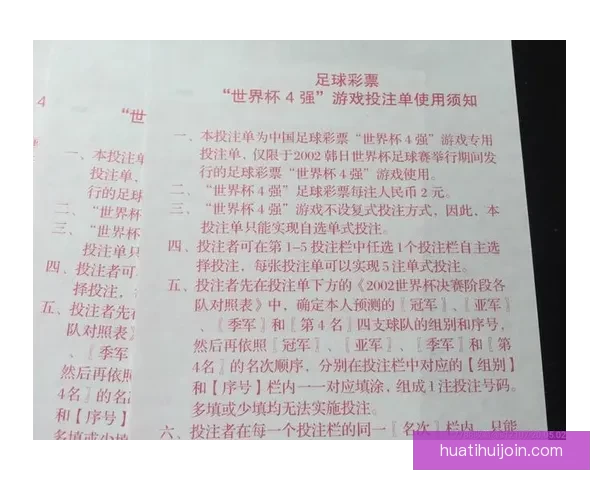 足球彩票
“世界杯 4 强”游戏投注单使用须知
一、本投注单为中国足球彩票“世界杯 4 强”游戏专用
投注单，仅限于2002 韩日世界杯足球赛举行期间发
行的足球彩票“世界杯 4 强”游戏使用。
二、“世界杯 4 强”足球彩票每注人民币 2 元。
三、“世界杯 4 强”游戏不设复式投注方式，因此，本
投注单只能实现自选单式投注。
四、投注者可在第 1-5 投注栏中任选 1个投注栏自主选
择投注，每张投注单可以实现 5 注单式投注。
五、投注者先在投注单下方的《2002世界杯决赛阶段各
队对照表》中，确定本人预测的〖冠军〗、〖亚军〗
、〖季军〗和〖第 4 名〗四支球队的组别和序号，
然后再依照〖冠军〗、〖亚军〗、〖季军〗和〖第
4名〗的名次顺序，分别在投注栏中对应的【组别】
和【序号】栏内一一对应填涂，组成1注投注号码。
多填或少填均无法实施投注。
六、投注者在每一个投注栏的同一〖名次〗栏内，只能
4
“世
一、本投注单
投注单，
行的足球
二、“世界杯
三、“世界杯
投注单只
四、投注者可
择投注，每
五、投注者先在
队对照表》
、〖季军
然后再依照
4名〗的名
和【序号】
多填或少填
huatihuijoin.com